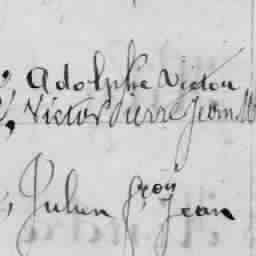 , Adolphe Victor
, Victor Pierre Jean M
, Julien Jean